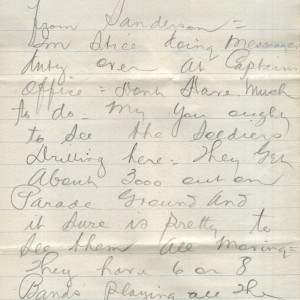 from Sanderson =
Im Still doing Message
duty over at Captains
Office = Dont Have Much
to do. My You ought
to See the Soldiers
Drilling here = They Get
About 3000 out on
Parade Ground And
it sure is pretty to
See them all Moving =
They have 6 or 8
Bands playing all the